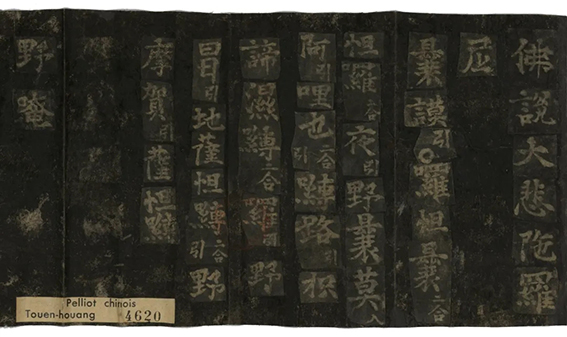 佛說大悲陀羅
尼
曩謨引囉怛曩二合
怛羅二合夜引野曩莫入
阿引哩也二合引嚩路枳
諦濕嚩二合羅野
冒引地薩怛嚩二合引野
摩賀引薩怛嚩
野唵
Pelliot chinois
Touen-houang 4620